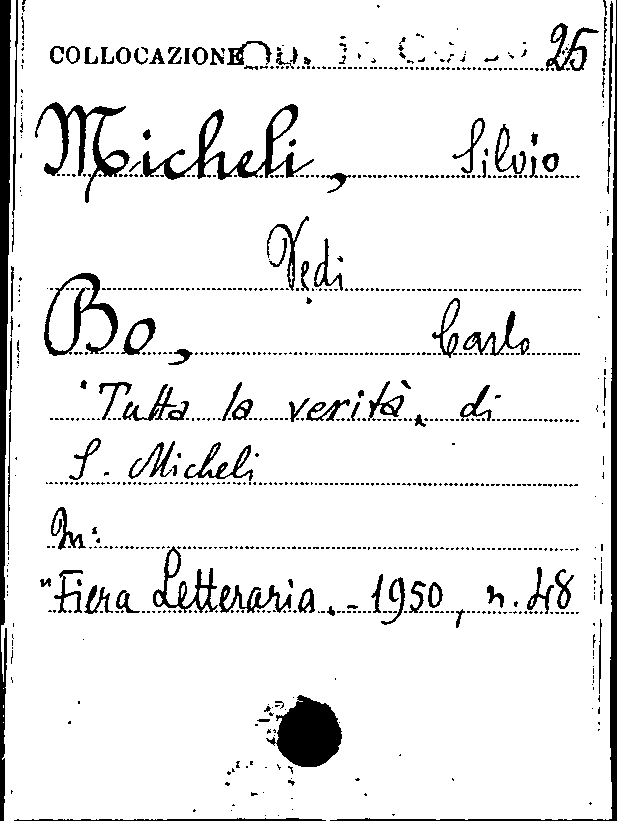 COLLOCAZIONE 25
Micheli, Silvio
Vedi
Bo, Carlo
"Tutta la verità" di
S. Micheli
In:
"Fiera Letteraria".- 1950, n. 48